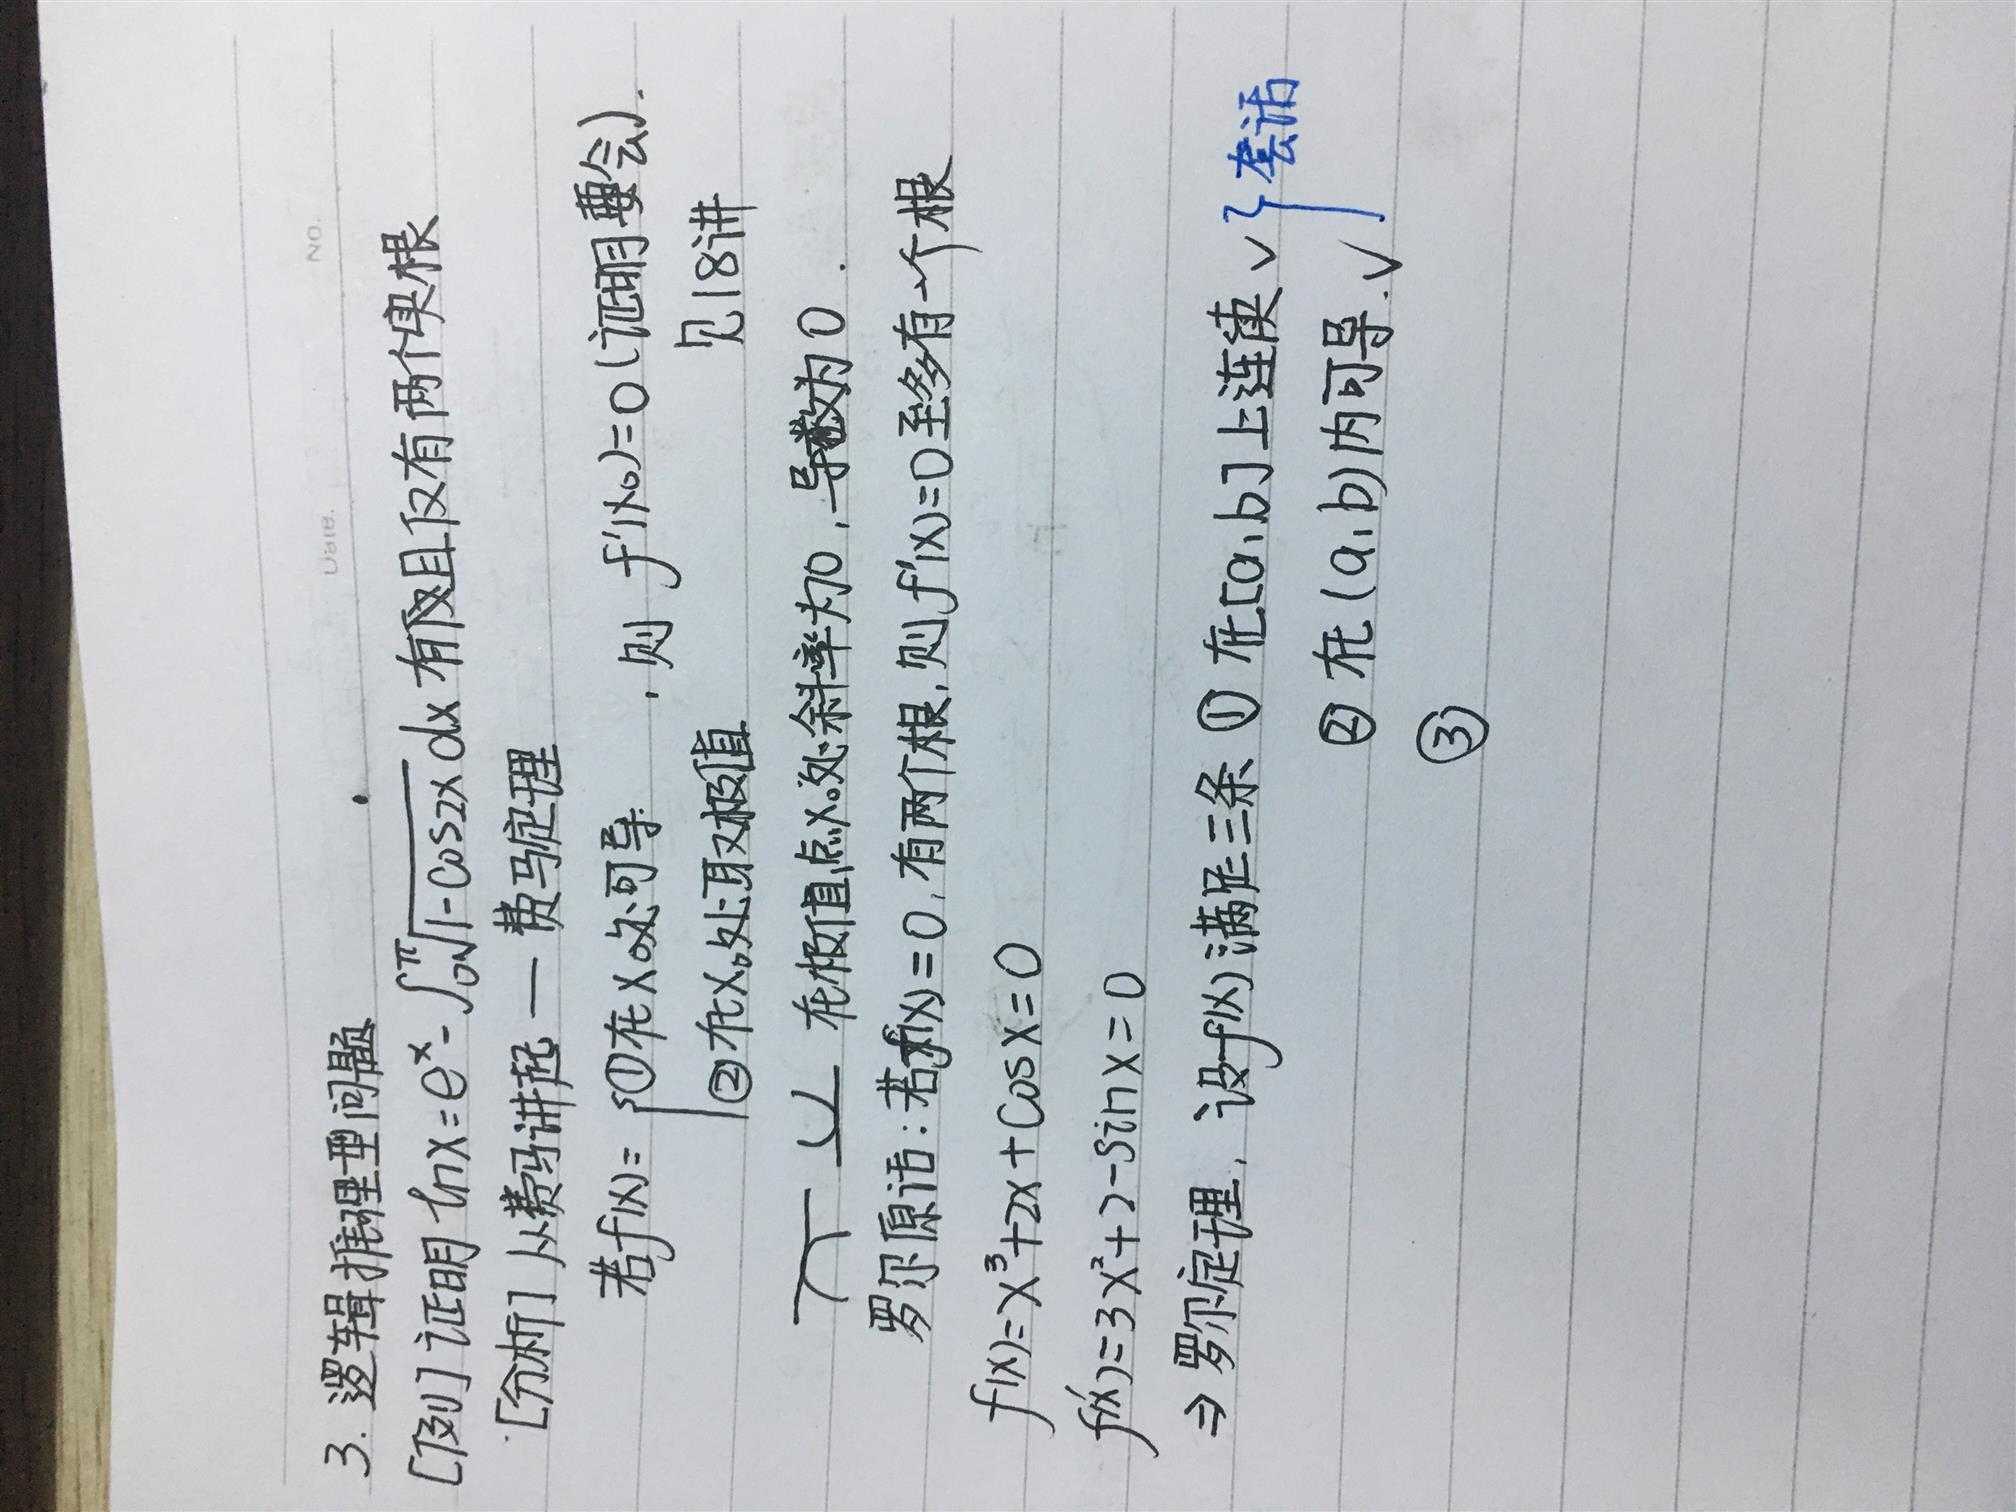 No.
Date.
3. 逻辑推理型问题
[例] 证明 lnx=e^x-∫₀^π√(1-cos2x)dx 有且仅有两个实根
[分析] 从费马讲起 — 费马定理
若f(x)= { ①在x₀处可导 , 则 f'(x₀)=0 (证明要会).
②在x₀处取极值 见18讲
在极值点x₀处斜率为0, 导数为0.
罗尔原话: 若f(x)=0, 有两个根, 则f'(x)=0至多有一个根
f(x)=x³+2x+cosx=0
f'(x)=3x²+2-sinx=0
⇒ 罗尔定理, 设f(x)满足三条 ① 在[a,b]上连续 ✓ } 套话
② 在(a,b)内可导. ✓
③